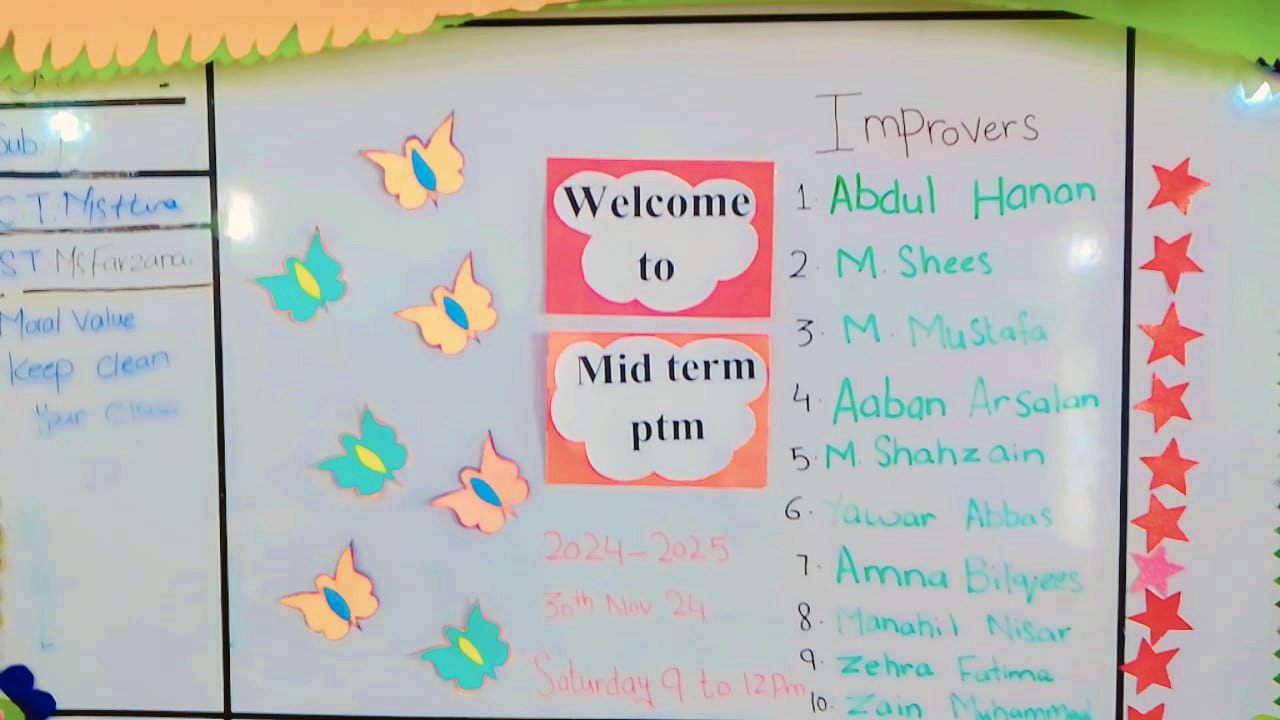 Sub.
C.T.
ST Ms Farzana
Moral Value
Keep clean
Your Class
Welcome
to
Mid term
ptm
2024-2025
30th Nov 24
Saturday 9 to 12 Pm
Improvers
1. Abdul Hanan
2. M. Shees
3. M. Mustafa
4. Aaban Arsalan
5. M. Shahzain
6. Yawar Abbas
7. Amna Bilqees
8. Manahil Nisar
9. Zehra Fatima
10. Zain Muhammad